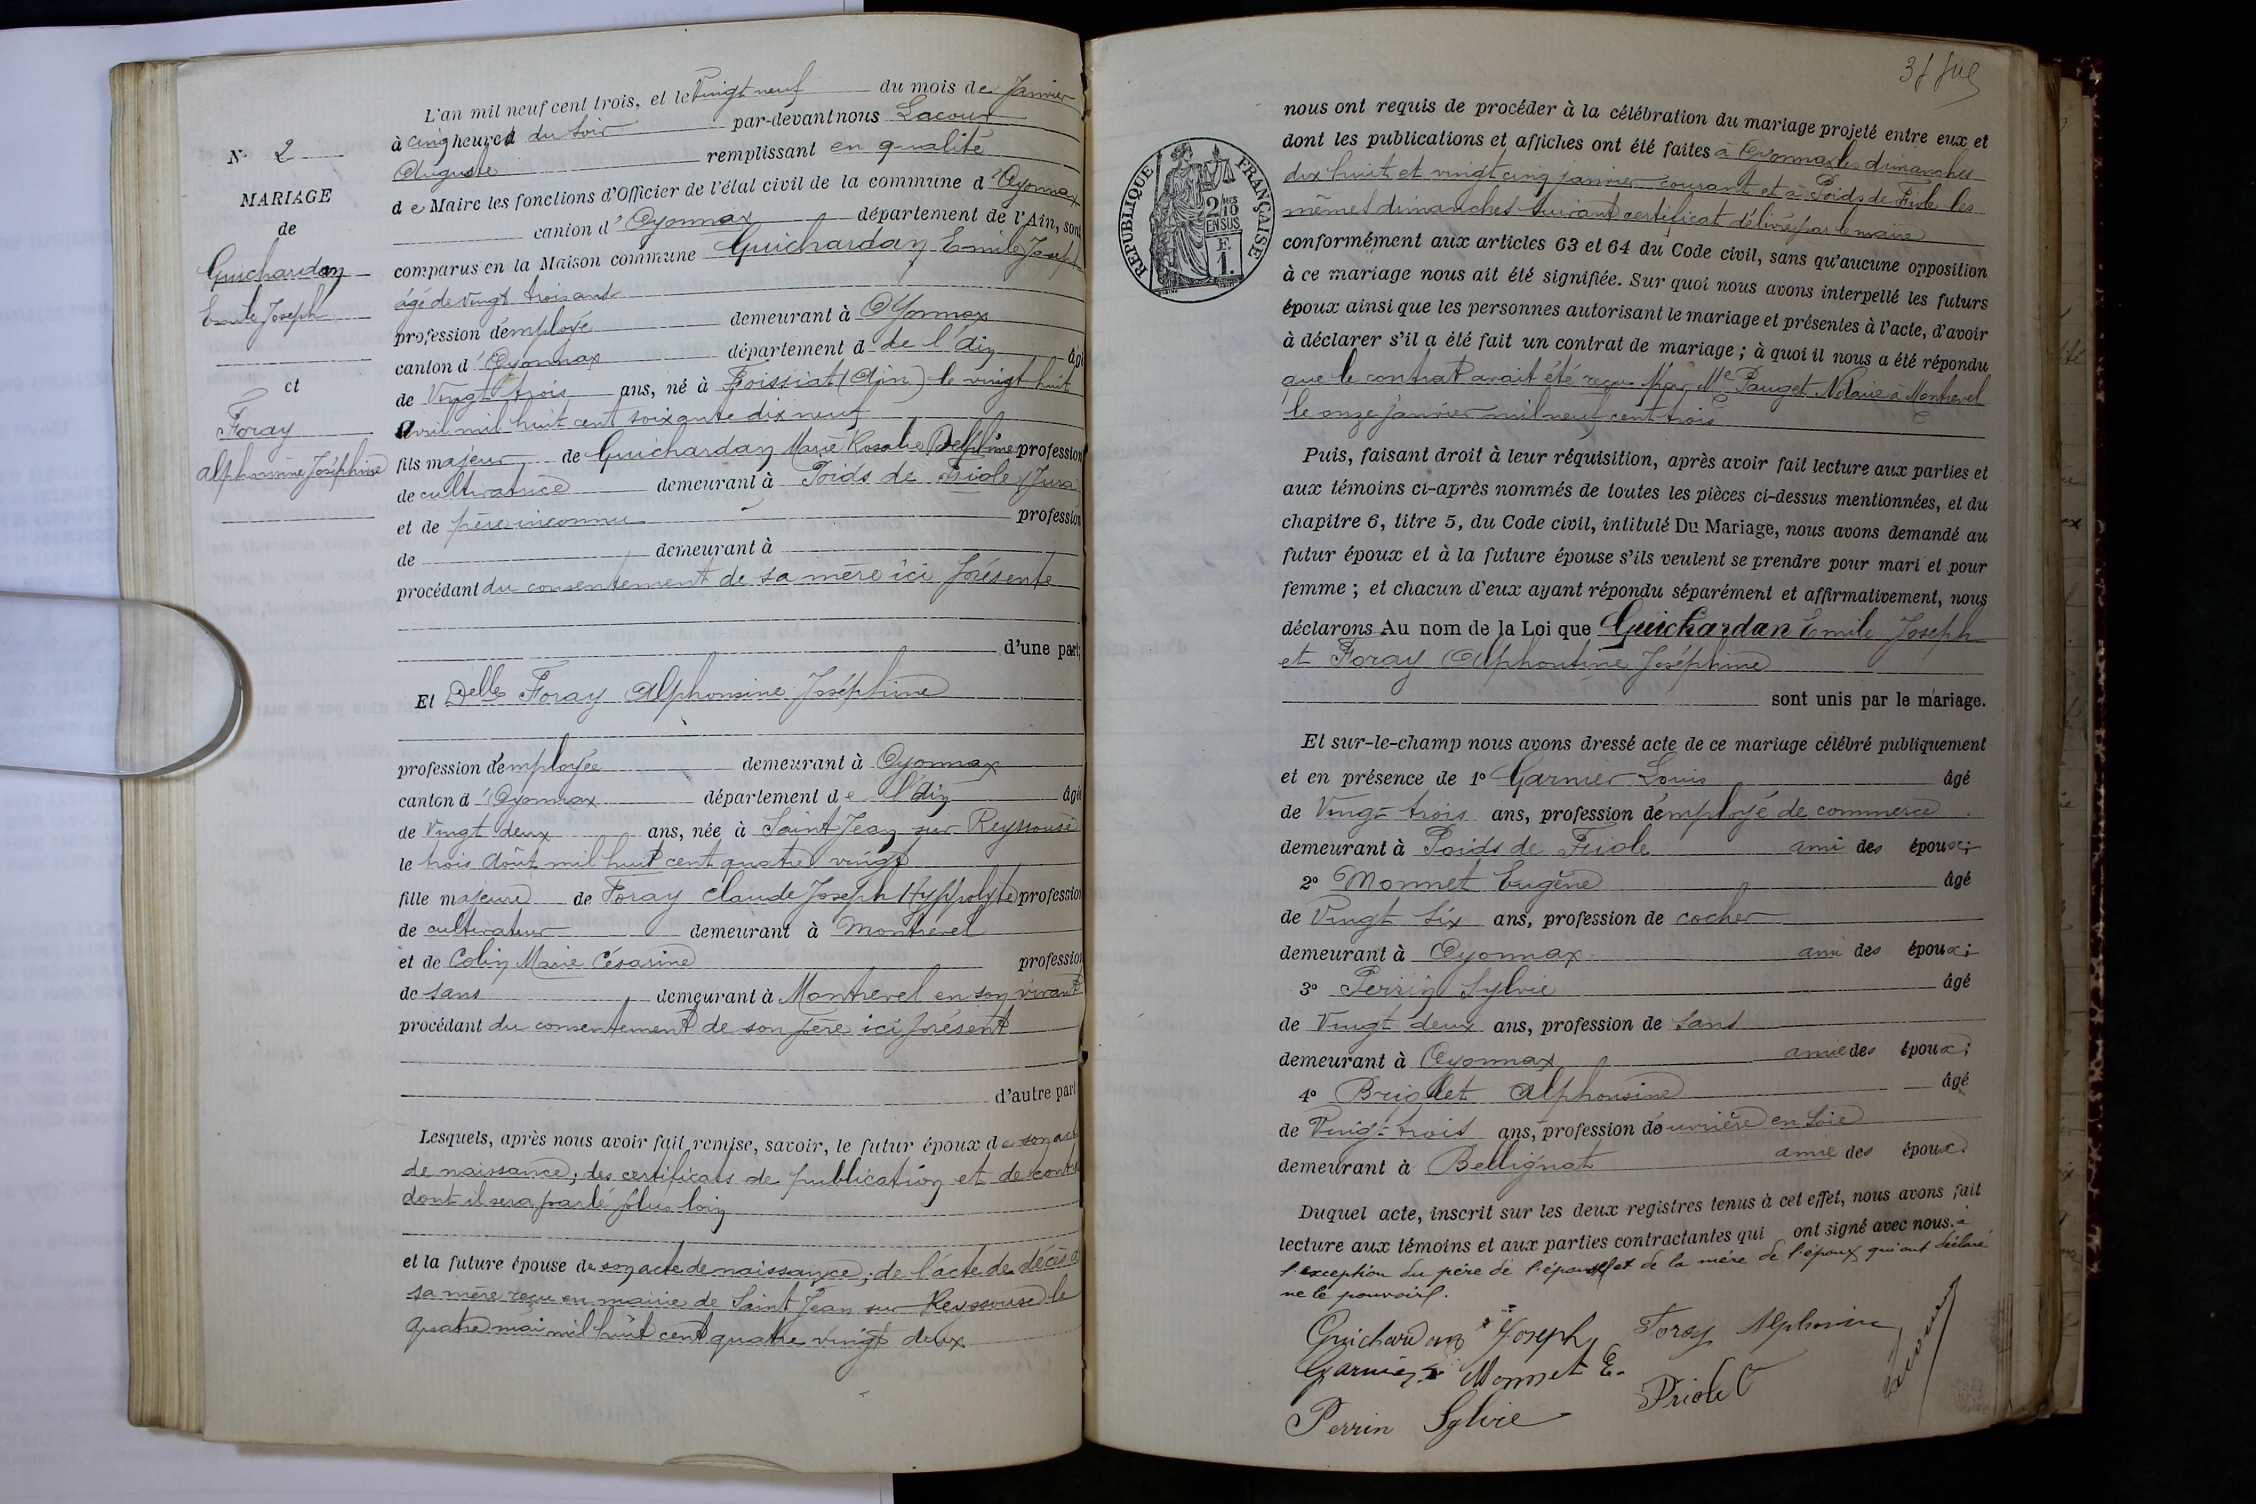 N° 2
MARIAGE
de
Guichardan
Emile Joseph
et
Foray
Alphonsine Joséphine
L'an mil neuf cent trois, et le Vingt neuf du mois de Janvier
à cinq heures du soir par-devant nous Lacour
Auguste remplissant en qualité
de Maire les fonctions d'Officier de l'état civil de la commune d'Oyonnax
canton d'Oyonnax département de l'Ain, sont
comparus en la Maison commune Guichardan Emile Joseph
âgé de vingt trois ans
profession d'employé demeurant à Oyonnax
canton d'Oyonnax département d de l'Ain âgé
de Vingt trois ans, né à Foissiat (Ain) le vingt huit
Avril mil huit cent soixante dix neuf
fils majeur de Guichardan Marie Rosalie Delphine profession
de cultivatrice demeurant à Poids de Fiole Jura
et de père inconnu profession
de demeurant à
procédant du consentement de sa mère ici présente
d'une part;
Et Delle Foray Alphonsine Joséphine
profession d'employée demeurant à Oyonnax
canton d'Oyonnax département de l'Ain âgée
de Vingt deux ans, née à Saint Jean sur Reyssouse
le trois Août mil huit cent quatre vingt
fille majeure de Foray Claude Joseph Hyppolyte profession
de cultivateur demeurant à Montrevel
et de Colin Marie Césarine profession
de sans demeurant à Montrevel en son vivant
procédant du consentement de son père ici présent
d'autre part
Lesquels, après nous avoir fait remise, savoir, le futur époux de son acte
de naissance; des certificats de publication et de contrat
dont il sera parlé plus loin
et la future épouse de son acte de naissance; de l'acte de décès de
sa mère reçu en mairie de Saint Jean sur Reyssouse le
quatre mai mil huit cent quatre vingt deux
RÉPUBLIQUE FRANÇAISE
2/10
EN SUS
F.
1.
nous ont requis de procéder à la célébration du mariage projeté entre eux et
dont les publications et affiches ont été faites à Oyonnax les dimanches
dix huit et vingt cinq janvier courant et à Poids de Fiole les
mêmes dimanches suivant certificat délivré par le maire
conformément aux articles 63 et 64 du Code civil, sans qu'aucune opposition
à ce mariage nous ait été signifiée. Sur quoi nous avons interpellé les futurs
époux ainsi que les personnes autorisant le mariage et présentes à l'acte, d'avoir
à déclarer s'il a été fait un contrat de mariage; à quoi il nous a été répondu
que le contrat avait été reçu par Me Pauget Notaire à Montrevel
le onze janvier mil neuf cent trois
Puis, faisant droit à leur réquisition, après avoir fait lecture aux parties et
aux témoins ci-après nommés de toutes les pièces ci-dessus mentionnées, et du
chapitre 6, titre 5, du Code civil, intitulé Du Mariage, nous avons demandé au
futur époux et à la future épouse s'ils veulent se prendre pour mari et pour
femme; et chacun d'eux ayant répondu séparément et affirmativement, nous
déclarons Au nom de la Loi que Guichardan Emile Joseph
et Foray Alphonsine Joséphine
sont unis par le mariage.
Et sur-le-champ nous avons dressé acte de ce mariage célébré publiquement
et en présence de 1° Garnier Louis âgé
de Vingt-trois ans, profession d'employé de commerce
demeurant à Poids de Fiole ami des époux;
2° Monnet Eugène âgé
de Vingt six ans, profession de cocher
demeurant à Oyonnax ami des époux;
3° Perrin Sylvie âgé
de Vingt deux ans, profession de sans
demeurant à Oyonnax amie des époux;
4° Alphonsine âgé
de Vingt-trois ans, profession d'ouvrière en soie
demeurant à Bellignat amie des époux.
Duquel acte, inscrit sur les deux registres tenus à cet effet, nous avons fait
lecture aux témoins et aux parties contractantes qui ont signé avec nous. à
l'exception du père de l'épouse et de la mère de l'époux qui ont déclaré
ne le pouvoir.
Guichardan Joseph Foray Alphonsine
Garnier L Monnet E.
Perrin Sylvie